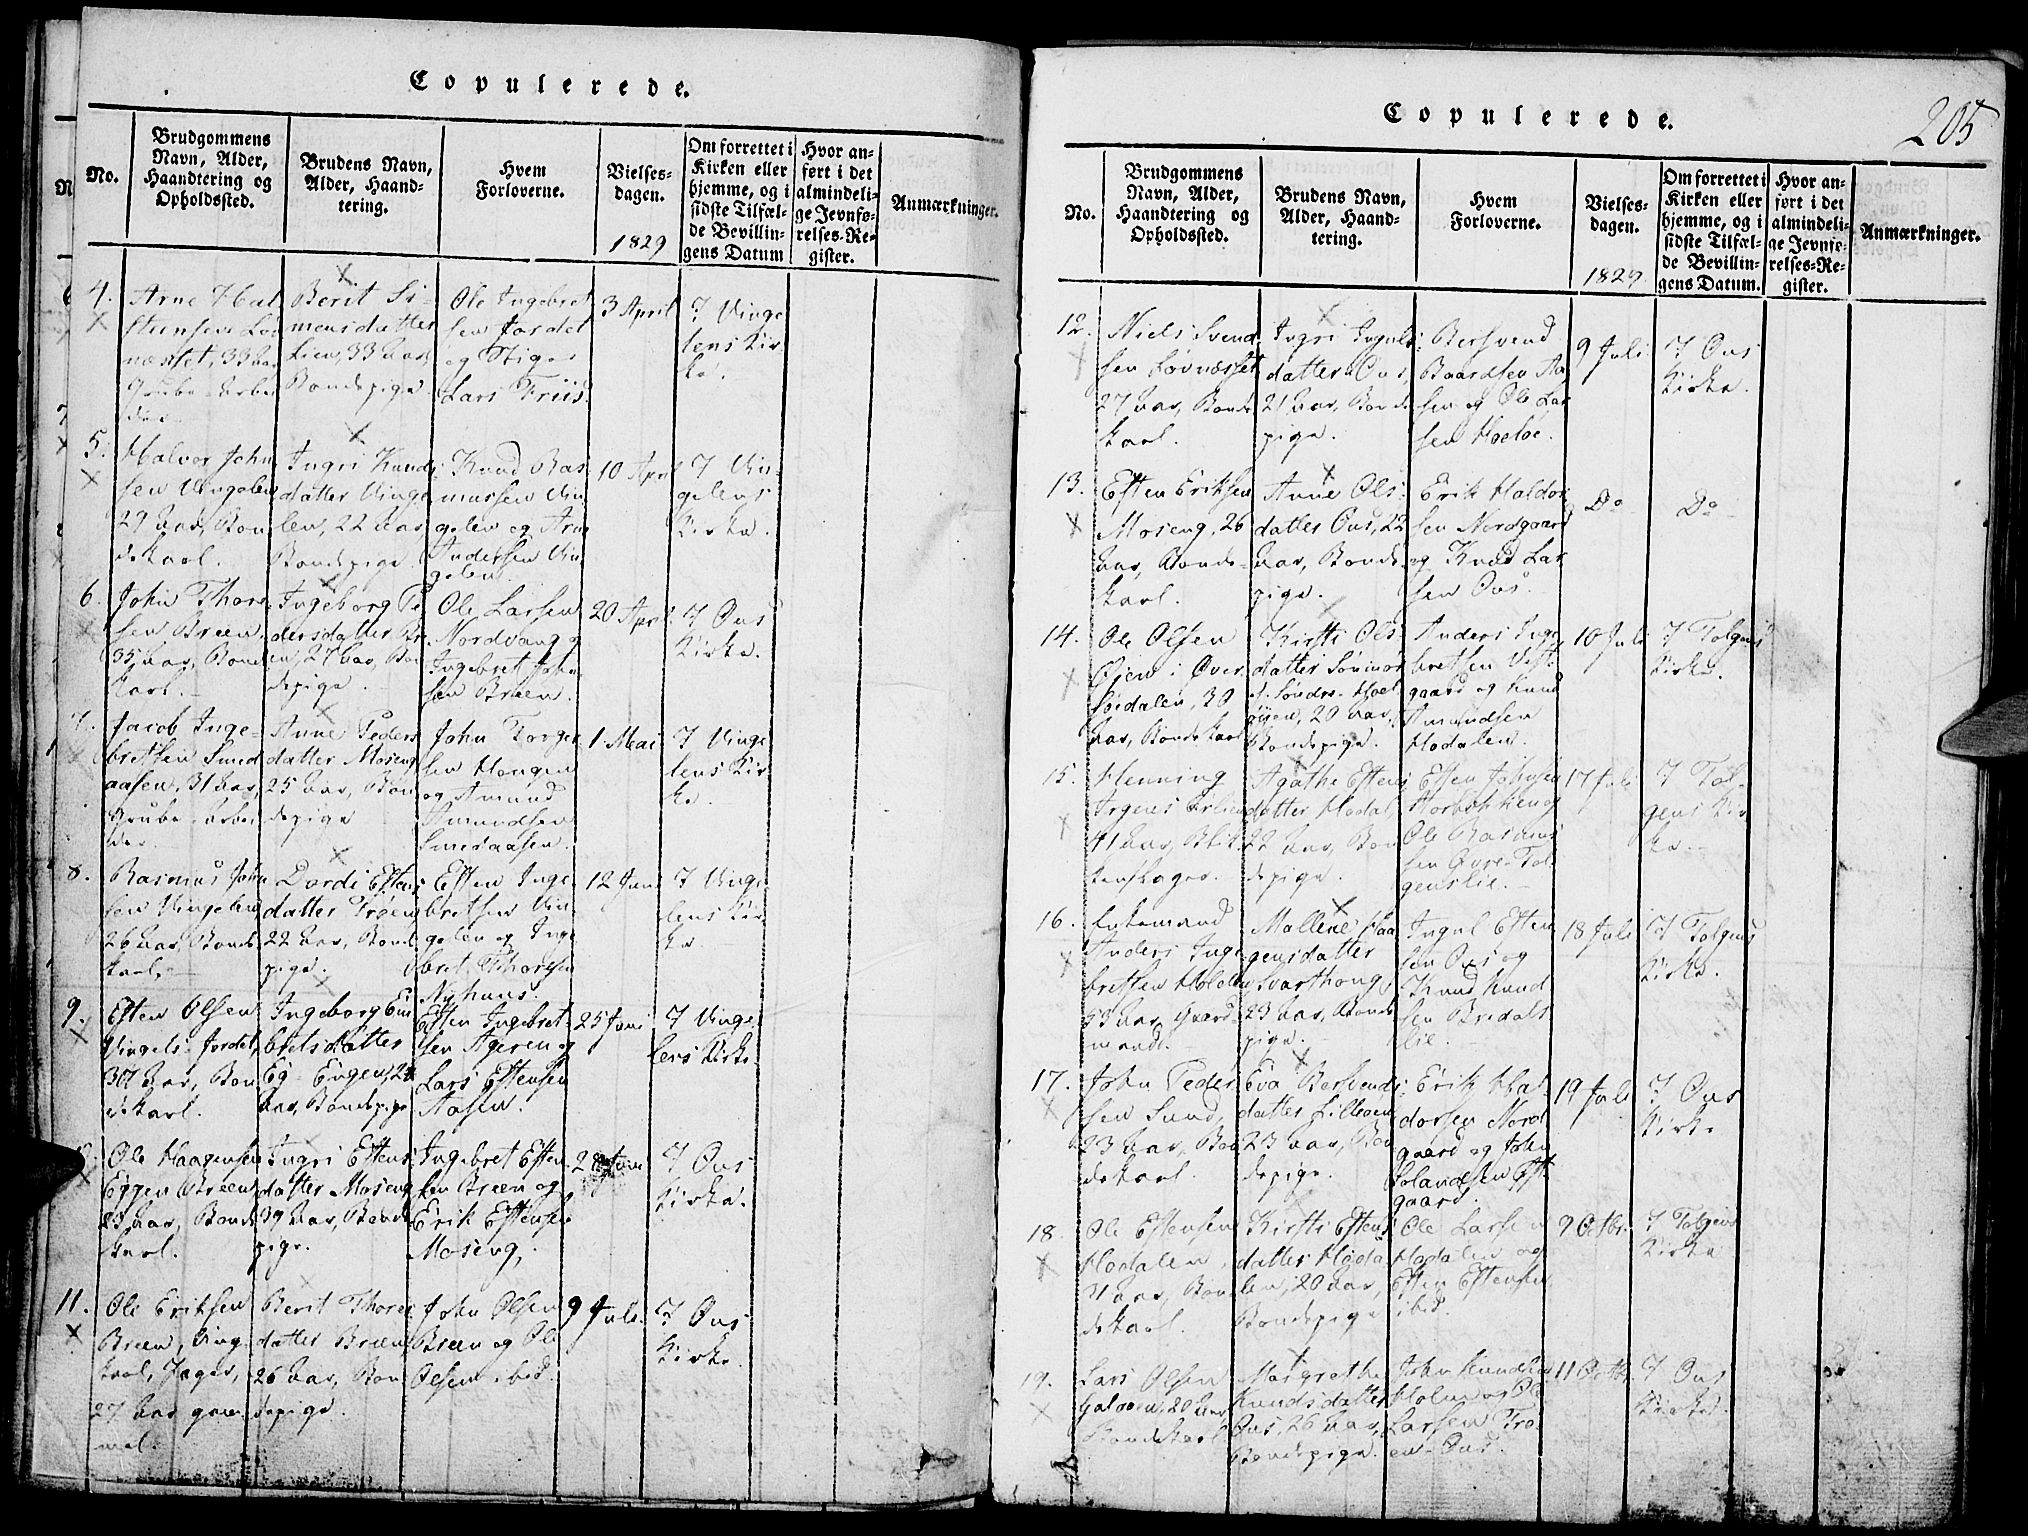 Copulerede.
No.
Brudgommens
Navn, Alder,
Haandtering og
Opholdssted.
Brudens Navn,
Alder, Haand-
tering.
Hvem
Forloverne.
Vielses-
dagen.
1829
Om forrettet i
Kirken eller
hjemme, og i
sidste Tilfæl-
de Bevillin-
gens Datum
Hvor an-
ført i det
almindeli-
ge Jevnfø-
relses-Re-
gister.
Anmærkninger.
4.
Arne Hal
33 Aar
Grube-Arbei
der
Berit Si-
monsdatter
Lien, 33 Aar,
Bondepige
Ole Ingebret
sen Jordet
og Stiger
Lars Friis.
3 April
I Vinge
lens Kir
ke.
5.
Halvor John
sen Vingelen
29 Aar, Bon
dekarl.
Ingri Knuds
datter Vinge
len, 22 Aar
Bondepige.
Knud Ras
mussen Vin
gelen og Arne
Andersen Vin
gelen.
10 Apr
I Vin-
gelens
Kirke.
6.
John Thore
sen Breen
35 Aar, Bonde
karl.
Ingeborg Pe
dersdatter Bre
en, 27 Aar, Bon
depige.
Ole Larsen
Nordvang og
Ingebret John
sen Breen.
20 Apr.
I Ous
Kirke.
7.
Jacob Inge-
bretsen Smed
aasen, 31 Aar,
Grube-Arbei
der.
Anne Peders
datter Moseng
25 Aar, Bon
depige
John Torger
sen Hongen
og Amund
Amundsen
Smedaasen.
1. Mai
I Vinge
lens Kir
ke.
8.
Rasmus John
sen Vingelen,
26 Aar, Bonde
karl.
Dordi Estens
datter Trøen
22 Aar, Bonde
pige.
Esten Inge
bretsen Vin
gelen og Inge
bret Thoresen
Nyhuus.
12 Juni
I Vinge
lens Kir
ke.
9.
Esten Olsen
Vingels-Jordet,
Aar, Bon
dekarl.
Ingeborg
bretsdatter
Aar, Bondepige
Esten Ingebret
sen Ageren og
Lars Estensen
Aasen.
25 Juni
I Vinge
lens Kirke.
Ole Haagensen
Eggen Breen,
23 Aar, Bonde
karl.
Ingri Estens
datter Moseng
39 Aar, Bonde
pige.
Ingebret Esten
sen Breen og
Erik Estensen
Moseng.
Juni
I Ous
Kirke.
11.
Ole Eriksen
Breen, Ung
karl, Jæger,
27 Aar gam
mel.
Berit Thores
datter Breen
26 Aar, Bon
depige.
John Olsen
Breen og Ole
Olsen ibid.
9 Juli.
I Ous
Kirke.
205
Copulerede.
No.
Brudgommens
Navn, Alder,
Haandtering og
Opholdssted.
Brudens Navn,
Alder, Haand-
tering.
Hvem
Forloverne.
Vielses-
dagen.
1829
Om forrettet i
Kirken eller
hjemme, og i
sidste Tilfæl-
de Bevillin-
gens Datum.
Hvor an-
ført i det
almindeli-
ge Jevnfø-
relses-Re-
gister.
Anmærkninger.
12.
Niels Svend
sen Lovnæsset
27 Aar, Bonde
karl.
Ingri Ingulds
datter Ous,
21 Aar, Bonde
pige.
Bersvend
Baardsen Aa
sen og Ole Lar
sen Hoeloe.
9 Juli
I Ous
Kirke.
13.
Esten Eriksen
Moseng, 26
Aar, Bonde-
karl.
Anne Ols
datter Ous, 22
Aar, Bonde
pige.
Erik Haldor
sen Nordgaard
og Knud Lar
sen Ous.
Do
Do
14.
Ole Olsen
Øien i Øver
30
Aar, Bondekarl
Kirsti Ols
datter
20 Aar,
Bondepige.
Anders Inge
bretsen Vest
gaard og Knud
Amundsen
Hodalen.
10 Juli
I Tolgens
Kirke.
15.
Henning
Irgens
41 Aar, Blik
kenslager.
Agathe Estens
datter Hodal,
22 Aar, Bon
depige.
Esten Johnsen
og
Ole Rasmus
sen Øvre-Tol
genslie.
17 Juli
I Tol-
gens Kir
ke.
16.
Enkemand
Anders Inge
bretsen Holden
53 Aar, Gaard
mand.
Mallene Haa
gensdatter
Svarthong,
23 Aar, Bonde
pige.
Ingul Esten
sen Ous og
Knud Knud
sen Bredals
lie.
18 Juli
I Tolgens
Kirke.
17.
John Peder
sen Sund,
23 Aar, Bon
dekarl.
Eva Bersvends
datter Lilleøen
23 Aar, Bon
depige.
Erik Hal-
dorsen Nord
gaard og John
Est
gaard.
19 Juli
I Ous
Kirke
18.
Ole Estensen
Hodalen,
31 Aar, Bon
dekarl.
Kirsti Estens
datter Hoda
len, 20 Aar,
Bondepige
Ole Larsen
Hodalen og
Esten Estensen
ibid.
9 Octbr.
I Tolgens
Kirke
19.
Lars Olsen
Galaaen, 20 Aar,
Bondekarl
Margrethe
Knudsdatter
Ous, 26 Aar,
Bondepige.
John Knudsen
Holm og Ole
Larsen Trø
en Ous.
11 Octbr.
I Ous
Kirke.